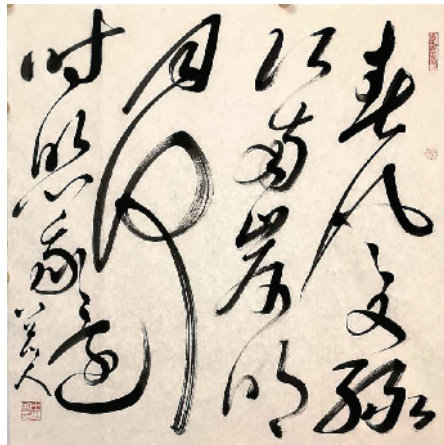 春风又绿
江南岸明
月何
时照我还